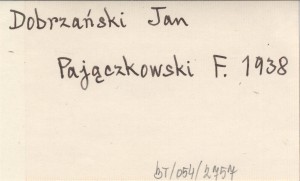 Dobrzański Jan
Pajączkowski F. 1938
DT/054/2757